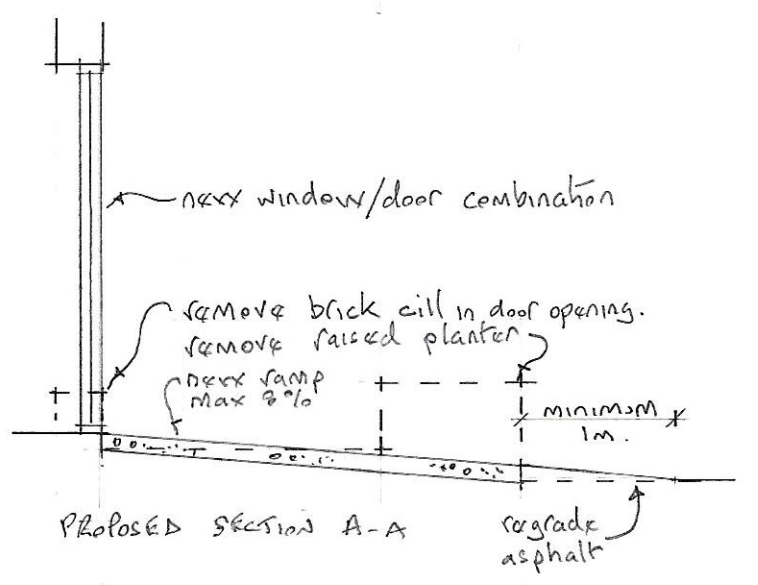 new window/door combination
remove brick cill in door opening.
remove raised planter
new ramp
max 8%
minimum
1m.
PROPOSED SECTION A-A
regrade
asphalt